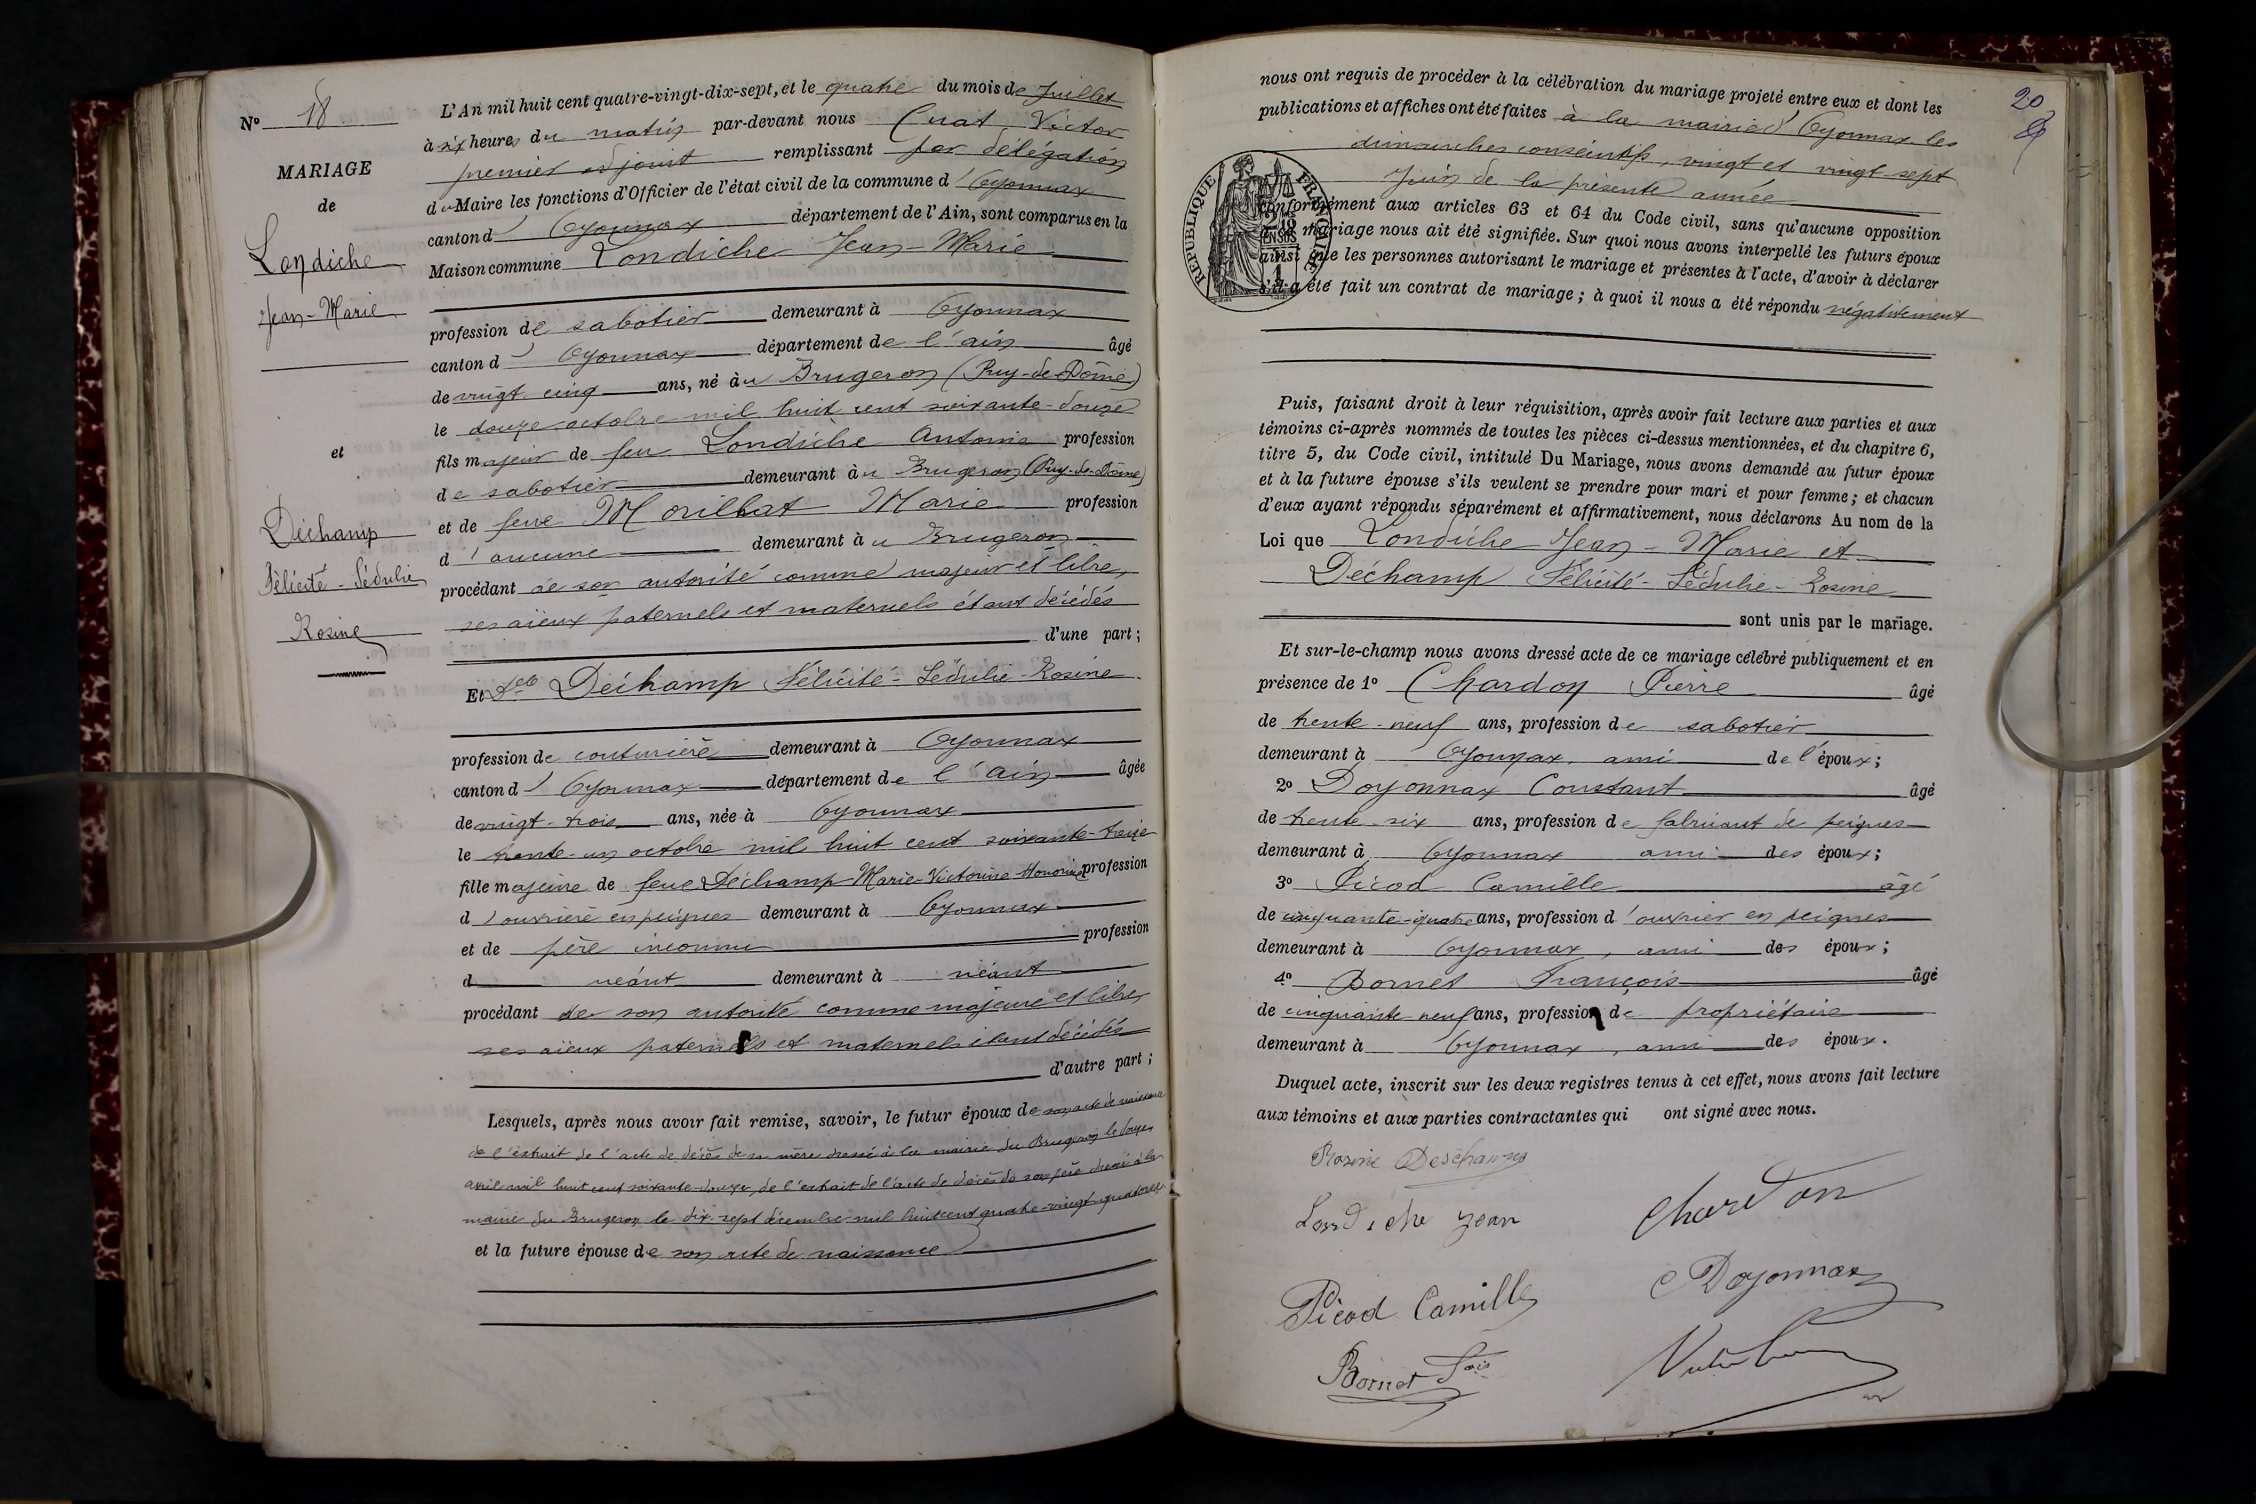 N° 18
MARIAGE
de
Londiche
Jean-Marie
et
Déchamp
Félicité-Sédulie
Rosine
L'An mil huit cent quatre-vingt-dix-sept, et le quatre du mois de Juillet
à six heures du matin par-devant nous Cuat Victor
premier adjoint remplissant par délégation
du Maire les fonctions d'Officier de l'état civil de la commune d'Oyonnax
canton d'Oyonnax département de l'Ain, sont comparus en la
Maison commune Londiche Jean-Marie
profession de sabotier demeurant à Oyonnax
canton d'Oyonnax département de l'ain âgé
de vingt cinq ans, né au Brugeron (Puy-de-Dôme)
le douze octobre mil huit cent soixante-douze
fils majeur de feu Londiche Antonin profession
de sabotier demeurant au Brugeron (Puy-de-Dôme)
et de feue Morillat Marie profession
d'aucune demeurant au Brugeron
procédant de son autorité comme majeur et libre,
ses aïeux paternels et maternels étant décédés
d'une part;
Et Delle Déchamp Félicité-Sédulie-Rosine
profession de couturière demeurant à Oyonnax
canton d'Oyonnax département de l'Ain âgée
de vingt-trois ans, née à Oyonnax
le trente-un octobre mil huit cent soixante-treize
fille majeure de feue Déchamp Marie-Victorine Honorine profession
d'ouvrière en peignes demeurant à Oyonnax
et de père inconnu profession
d néant demeurant à néant
procédant de son autorité comme majeure et libre,
ses aïeux paternels et maternels étant décédés
d'autre part;
Lesquels, après nous avoir fait remise, savoir, le futur époux de son acte de naissance
de l'extrait de l'acte de décès de sa mère dressé à la mairie du Brugeron le douze
avril mil huit cent soixante-douze, de l'extrait de l'acte de décès de son père dressé à la
mairie du Brugeron le dix-sept décembre mil huit cent quatre-vingt-quatorze
et la future épouse de son acte de naissance
20
nous ont requis de procéder à la célébration du mariage projeté entre eux et dont les
publications et affiches ont été faites à la mairie d'Oyonnax les
dimanches consécutifs, vingt et vingt-sept
Juin de la présente année
RÉPUBLIQUE FRANÇAISE
conformément aux articles 63 et 64 du Code civil, sans qu'aucune opposition
au mariage nous ait été signifiée. Sur quoi nous avons interpellé les futurs époux
ainsi que les personnes autorisant le mariage et présentes à l'acte, d'avoir à déclarer
s'il a été fait un contrat de mariage; à quoi il nous a été répondu négativement
Puis, faisant droit à leur réquisition, après avoir fait lecture aux parties et aux
témoins ci-après nommés de toutes les pièces ci-dessus mentionnées, et du chapitre 6,
titre 5, du Code civil, intitulé Du Mariage, nous avons demandé au futur époux
et à la future épouse s'ils veulent se prendre pour mari et pour femme; et chacun
d'eux ayant répondu séparément et affirmativement, nous déclarons Au nom de la
Loi que Londiche Jean-Marie et
Déchamp Félicité-Sédulie-Rosine
sont unis par le mariage.
Et sur-le-champ nous avons dressé acte de ce mariage célébré publiquement et en
présence de 1° Chardon Pierre âgé
de trente-neuf ans, profession de sabotier
demeurant à Oyonnax, ami de l'époux;
2° Doyonnax Constant âgé
de trente-six ans, profession de fabricant de peignes
demeurant à Oyonnax ami des époux;
3° Picod Camille âgé
de cinquante-quatre ans, profession d'ouvrier en peignes
demeurant à Oyonnax, ami des époux;
4° Bornet François âgé
de cinquante neuf ans, profession de propriétaire
demeurant à Oyonnax, ami des époux.
Duquel acte, inscrit sur les deux registres tenus à cet effet, nous avons fait lecture
aux témoins et aux parties contractantes qui ont signé avec nous.
Rosine Deschamps
Londiche Jean
Chardon
Picod Camille
C Doyonnax
Bornet Fois